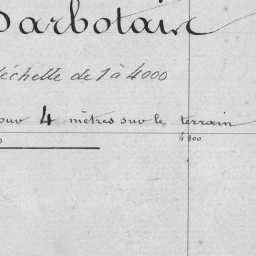 Barbotair
l'échelle de 1 à 4000
pour 4 mètres sur le terrain